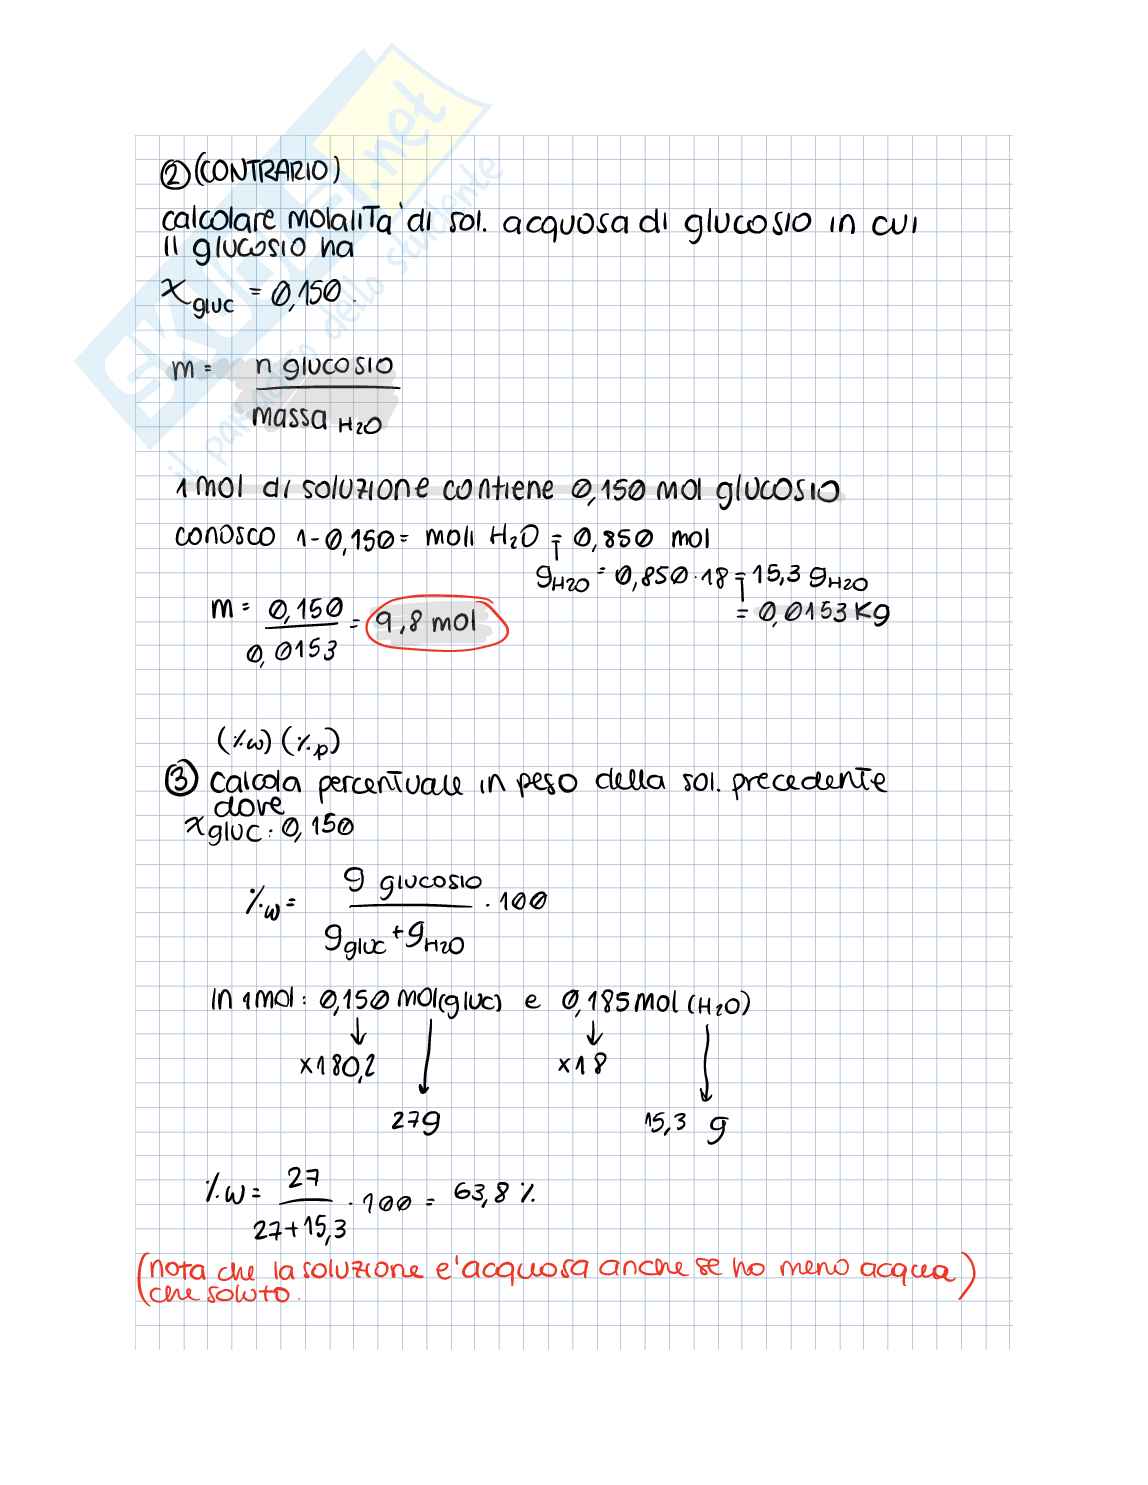 ② (CONTRARIO)
calcolare molalità di sol. acquosa di glucosio in cui
il glucosio ha
x gluc = 0,150.
m = n glucosio / massa H2O
1 mol di soluzione contiene 0,150 mol glucosio
conosco 1-0,150 = moli H2O = 0,850 mol
gH2O = 0,850·18 = 15,3 gH2O
= 0,0153 Kg
m = 0,150 / 0,0153 = 9,8 mol
(%w) (%p)
③ calcola percentuale in peso della sol. precedente
dove
x gluc: 0,150
%w = g glucosio / g gluc + g H2O · 100
In 1 mol: 0,150 mol(gluc) e 0,185 mol (H2O)
×180,2 ×18
27g 15,3 g
%w = 27 / 27+15,3 · 100 = 63,8 %
(nota che la soluzione e' acquosa anche se ho meno acqua
che soluto.)
SKUOLA.net
il paradiso dello studente